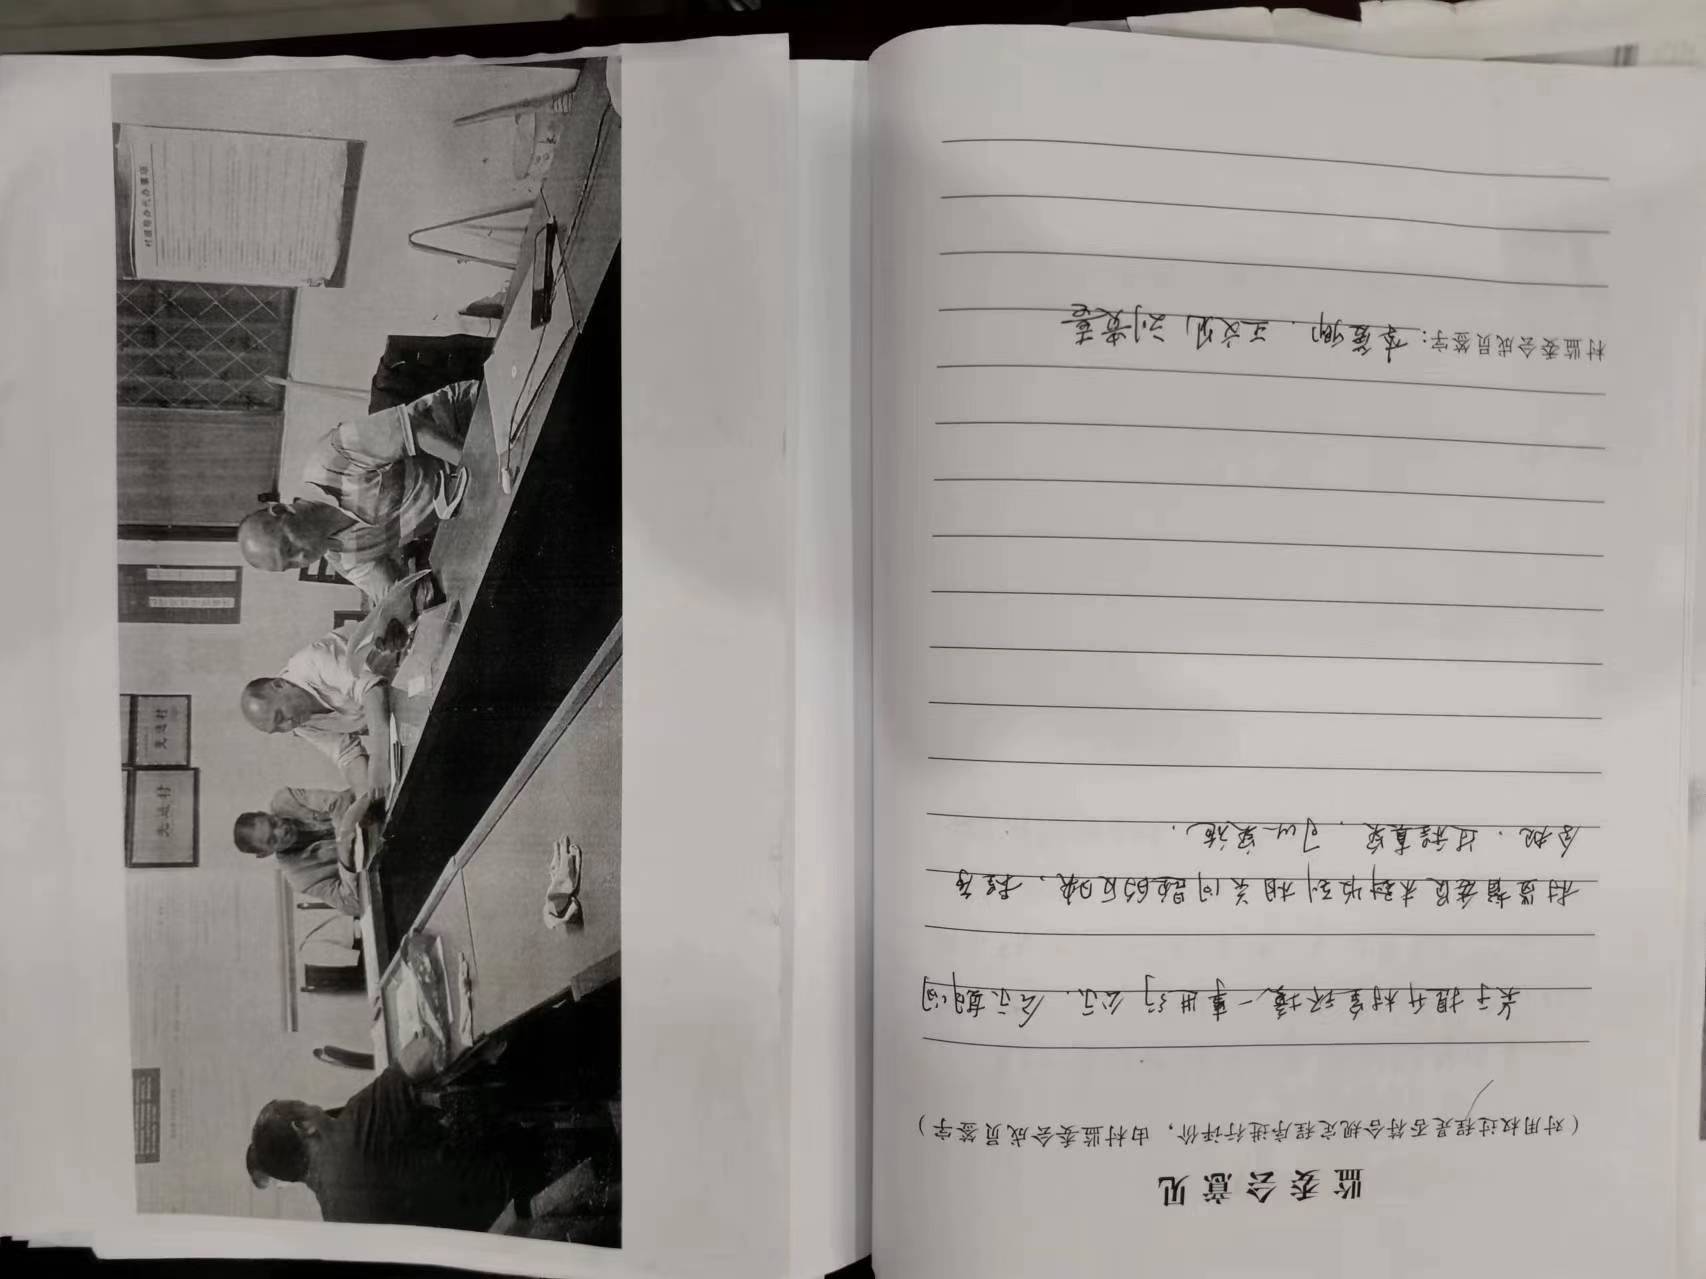 监委会意见
（对用权过程是否符合规定程序进行评价，由村监委会成员签字）
关于提升村室环境一事进行公示．公示期间
村监督委员未到收到相关问题的反映．程序
合规．过程真实．可以实施．
村监委会成员签字：
村级帮办代办事项
先进村
先进村